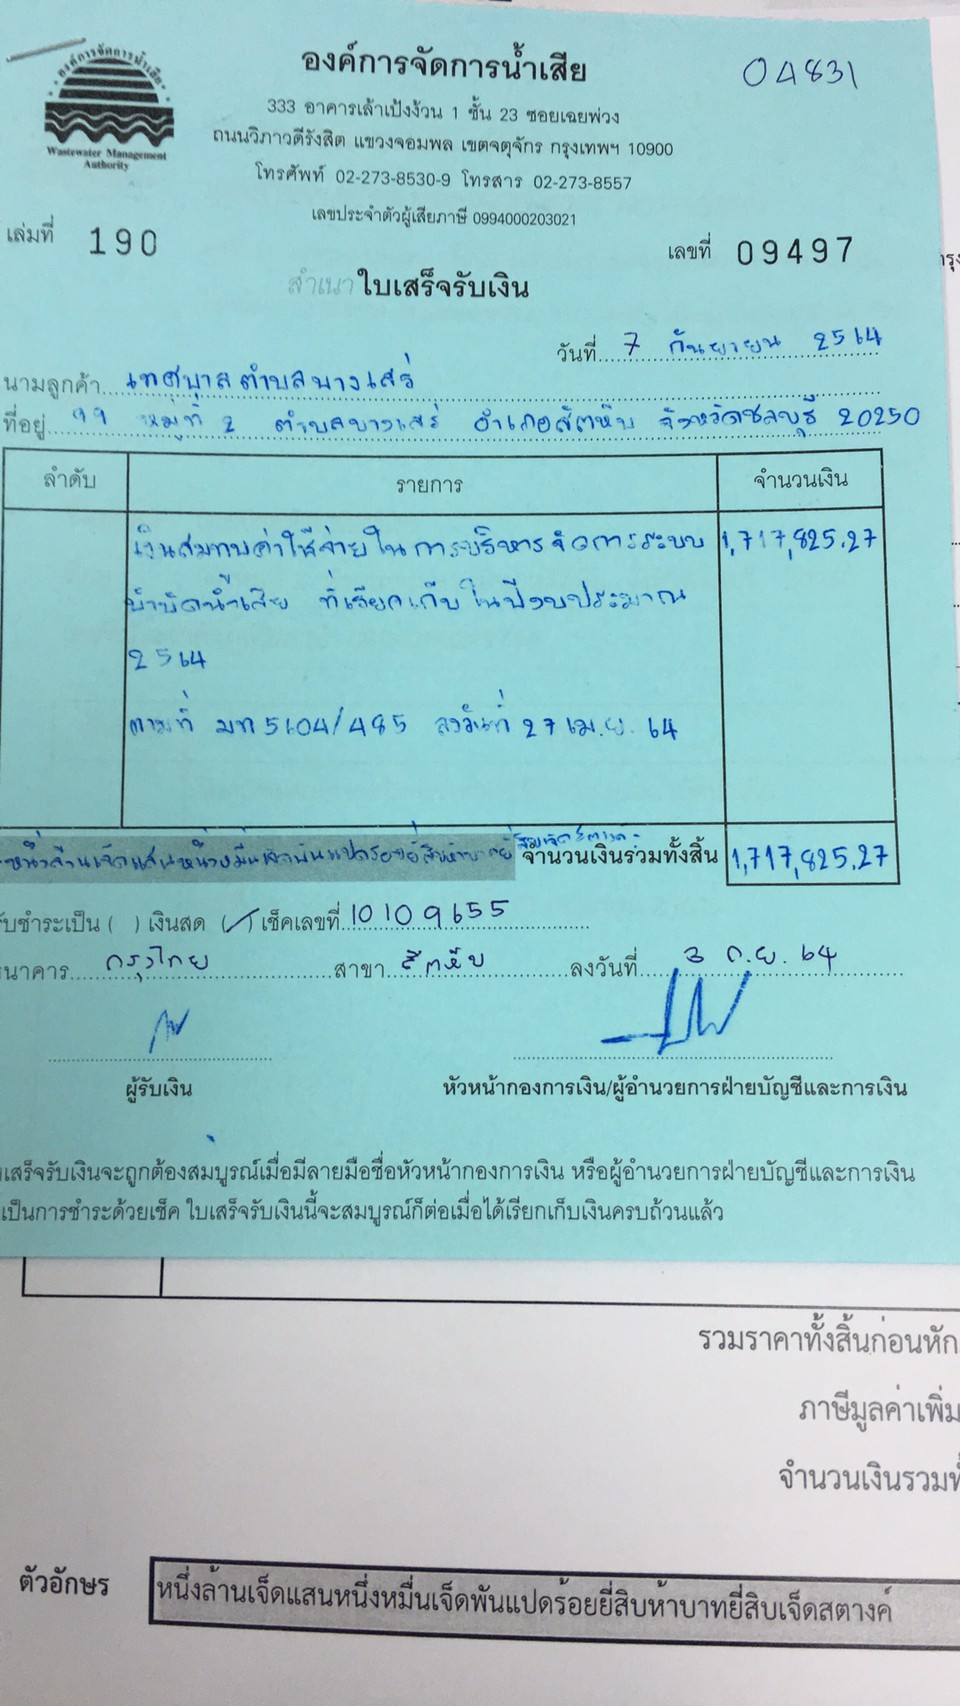 องค์การจัดการน้ำเสีย
04831
333 อาคารเล้าเป้งง้วน 1 ชั้น 23 ซอยเฉยพ่วง
ถนนวิภาวดีรังสิต แขวงจอมพล เขตจตุจักร กรุงเทพฯ 10900
โทรศัพท์ 02-273-8530-9 โทรสาร 02-273-8557
เลขประจำตัวผู้เสียภาษี 0994000203021
องค์การจัดการน้ำเสีย
Wastewater Management
Authority
เล่มที่ 190
เลขที่ 09497
สำเนา ใบเสร็จรับเงิน
วันที่ 7 กันยายน 2564
นามลูกค้า เทศบาลตำบลบางเสร่
ที่อยู่ 99 หมู่ที่ 2 ตำบลบางเสร่ อำเภอสัตหีบ จังหวัดชลบุรี 20250
ลำดับ รายการ จำนวนเงิน
เงินสมทบค่าใช้จ่ายในการบริหารจัดการระบบ 1,717,825.27
บำบัดน้ำเสีย ที่เรียกเก็บในปีงบประมาณ
2564
ตามที่ มท 5104/485 ลงวันที่ 27 เม.ย. 64
หนึ่งล้านเจ็ดแสนหนึ่งหมื่นเจ็ดพันแปดร้อยยี่สิบห้าบาทยี่สิบเจ็ดสตางค์ จำนวนเงินรวมทั้งสิ้น 1,717,825.27
รับชำระเป็น ( ) เงินสด (✓) เช็คเลขที่ 10109655
ธนาคาร กรุงไทย สาขา สัตหีบ ลงวันที่ 3 ก.ย. 64
ผู้รับเงิน หัวหน้ากองการเงิน/ผู้อำนวยการฝ่ายบัญชีและการเงิน
บเสร็จรับเงินจะถูกต้องสมบูรณ์เมื่อมีลายมือชื่อหัวหน้ากองการเงิน หรือผู้อำนวยการฝ่ายบัญชีและการเงิน
เป็นการชำระด้วยเช็ค ใบเสร็จรับเงินนี้จะสมบูรณ์ก็ต่อเมื่อได้เรียกเก็บเงินครบถ้วนแล้ว
รวมราคาทั้งสิ้นก่อนหัก
ภาษีมูลค่าเพิ่ม
จำนวนเงินรวมทั้
ตัวอักษร หนึ่งล้านเจ็ดแสนหนึ่งหมื่นเจ็ดพันแปดร้อยยี่สิบห้าบาทยี่สิบเจ็ดสตางค์